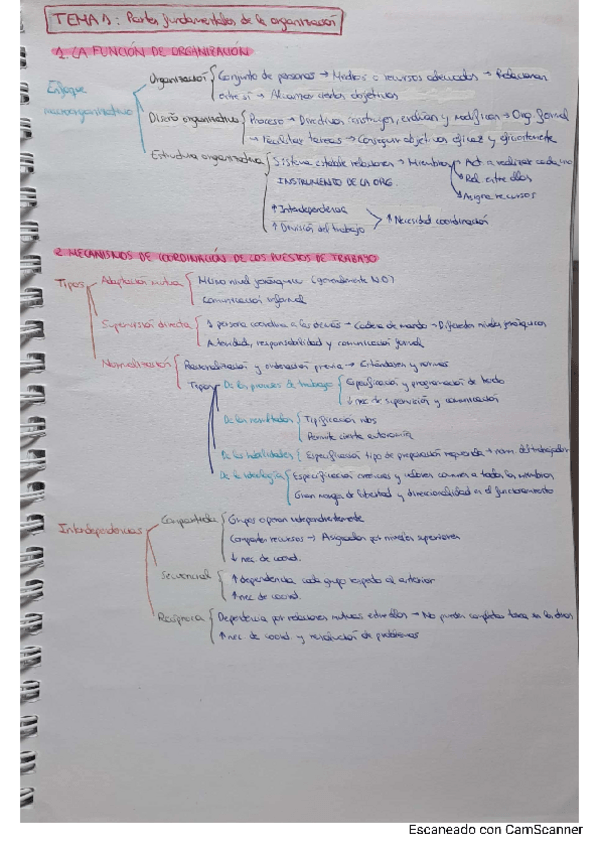 TEMA 1: Partes fundamentales de la organización
1. LA FUNCIÓN DE ORGANIZACIÓN
Enfoque microorganizativo
Organización { Conjunto de personas → Medios o recursos adecuados → Relacionan
entre sí → Alcanzar ciertos objetivos
Diseño organizativo { Proceso → Directivos construyen, evalúan y modifican → Org. formal
→ Facilitar tareas → Conseguir objetivos eficaz y eficientemente
Estructura organizativa { Sistema estable relaciones → Miembros → Act a realizar cada uno
INSTRUMENTO DE LA ORG. → Rel. entre ellos
→ Asignar recursos
↑ Interdependencia
↑ División del trabajo > ↑ Necesidad coordinación
2. MECANISMOS DE COORDINACIÓN DE LOS PUESTOS DE TRABAJO
Tipos
Adaptación mutua { Mismo nivel jerárquico (generalmente NO)
Comunicación informal
Supervisión directa { 1 persona coordina a las demás → Cadena de mando → Diferentes niveles jerárquicos
Autoridad, responsabilidad y comunicación formal
Normalización { Racionalización y ordenación previa → Estándares y normas
Tipos
De los procesos de trabajo { Especificación y programación de
↓ nec de supervisión y comunicación
De los resultados { Tipificación
Permite cierta autonomía
De las habilidades { Especificación tipo de preparación requerida → norm. del trabajador
De la ideología { Especificación creencias y valores comunes a todos los miembros
Gran margen de libertad y direccionalidad en el funcionamiento
Interdependencias
Compartida { Grupos operan independientemente
Comparten recursos → Asignados por niveles superiores
↓ nec de coord.
Secuencial { ↑ dependencia cada grupo respecto al anterior
↑ nec de coord.
Recíproca { Dependencia por relaciones mutuas entre ellos → No pueden completar tarea sin los otros
↑ nec de coord y resolución de problemas
Escaneado con CamScanner